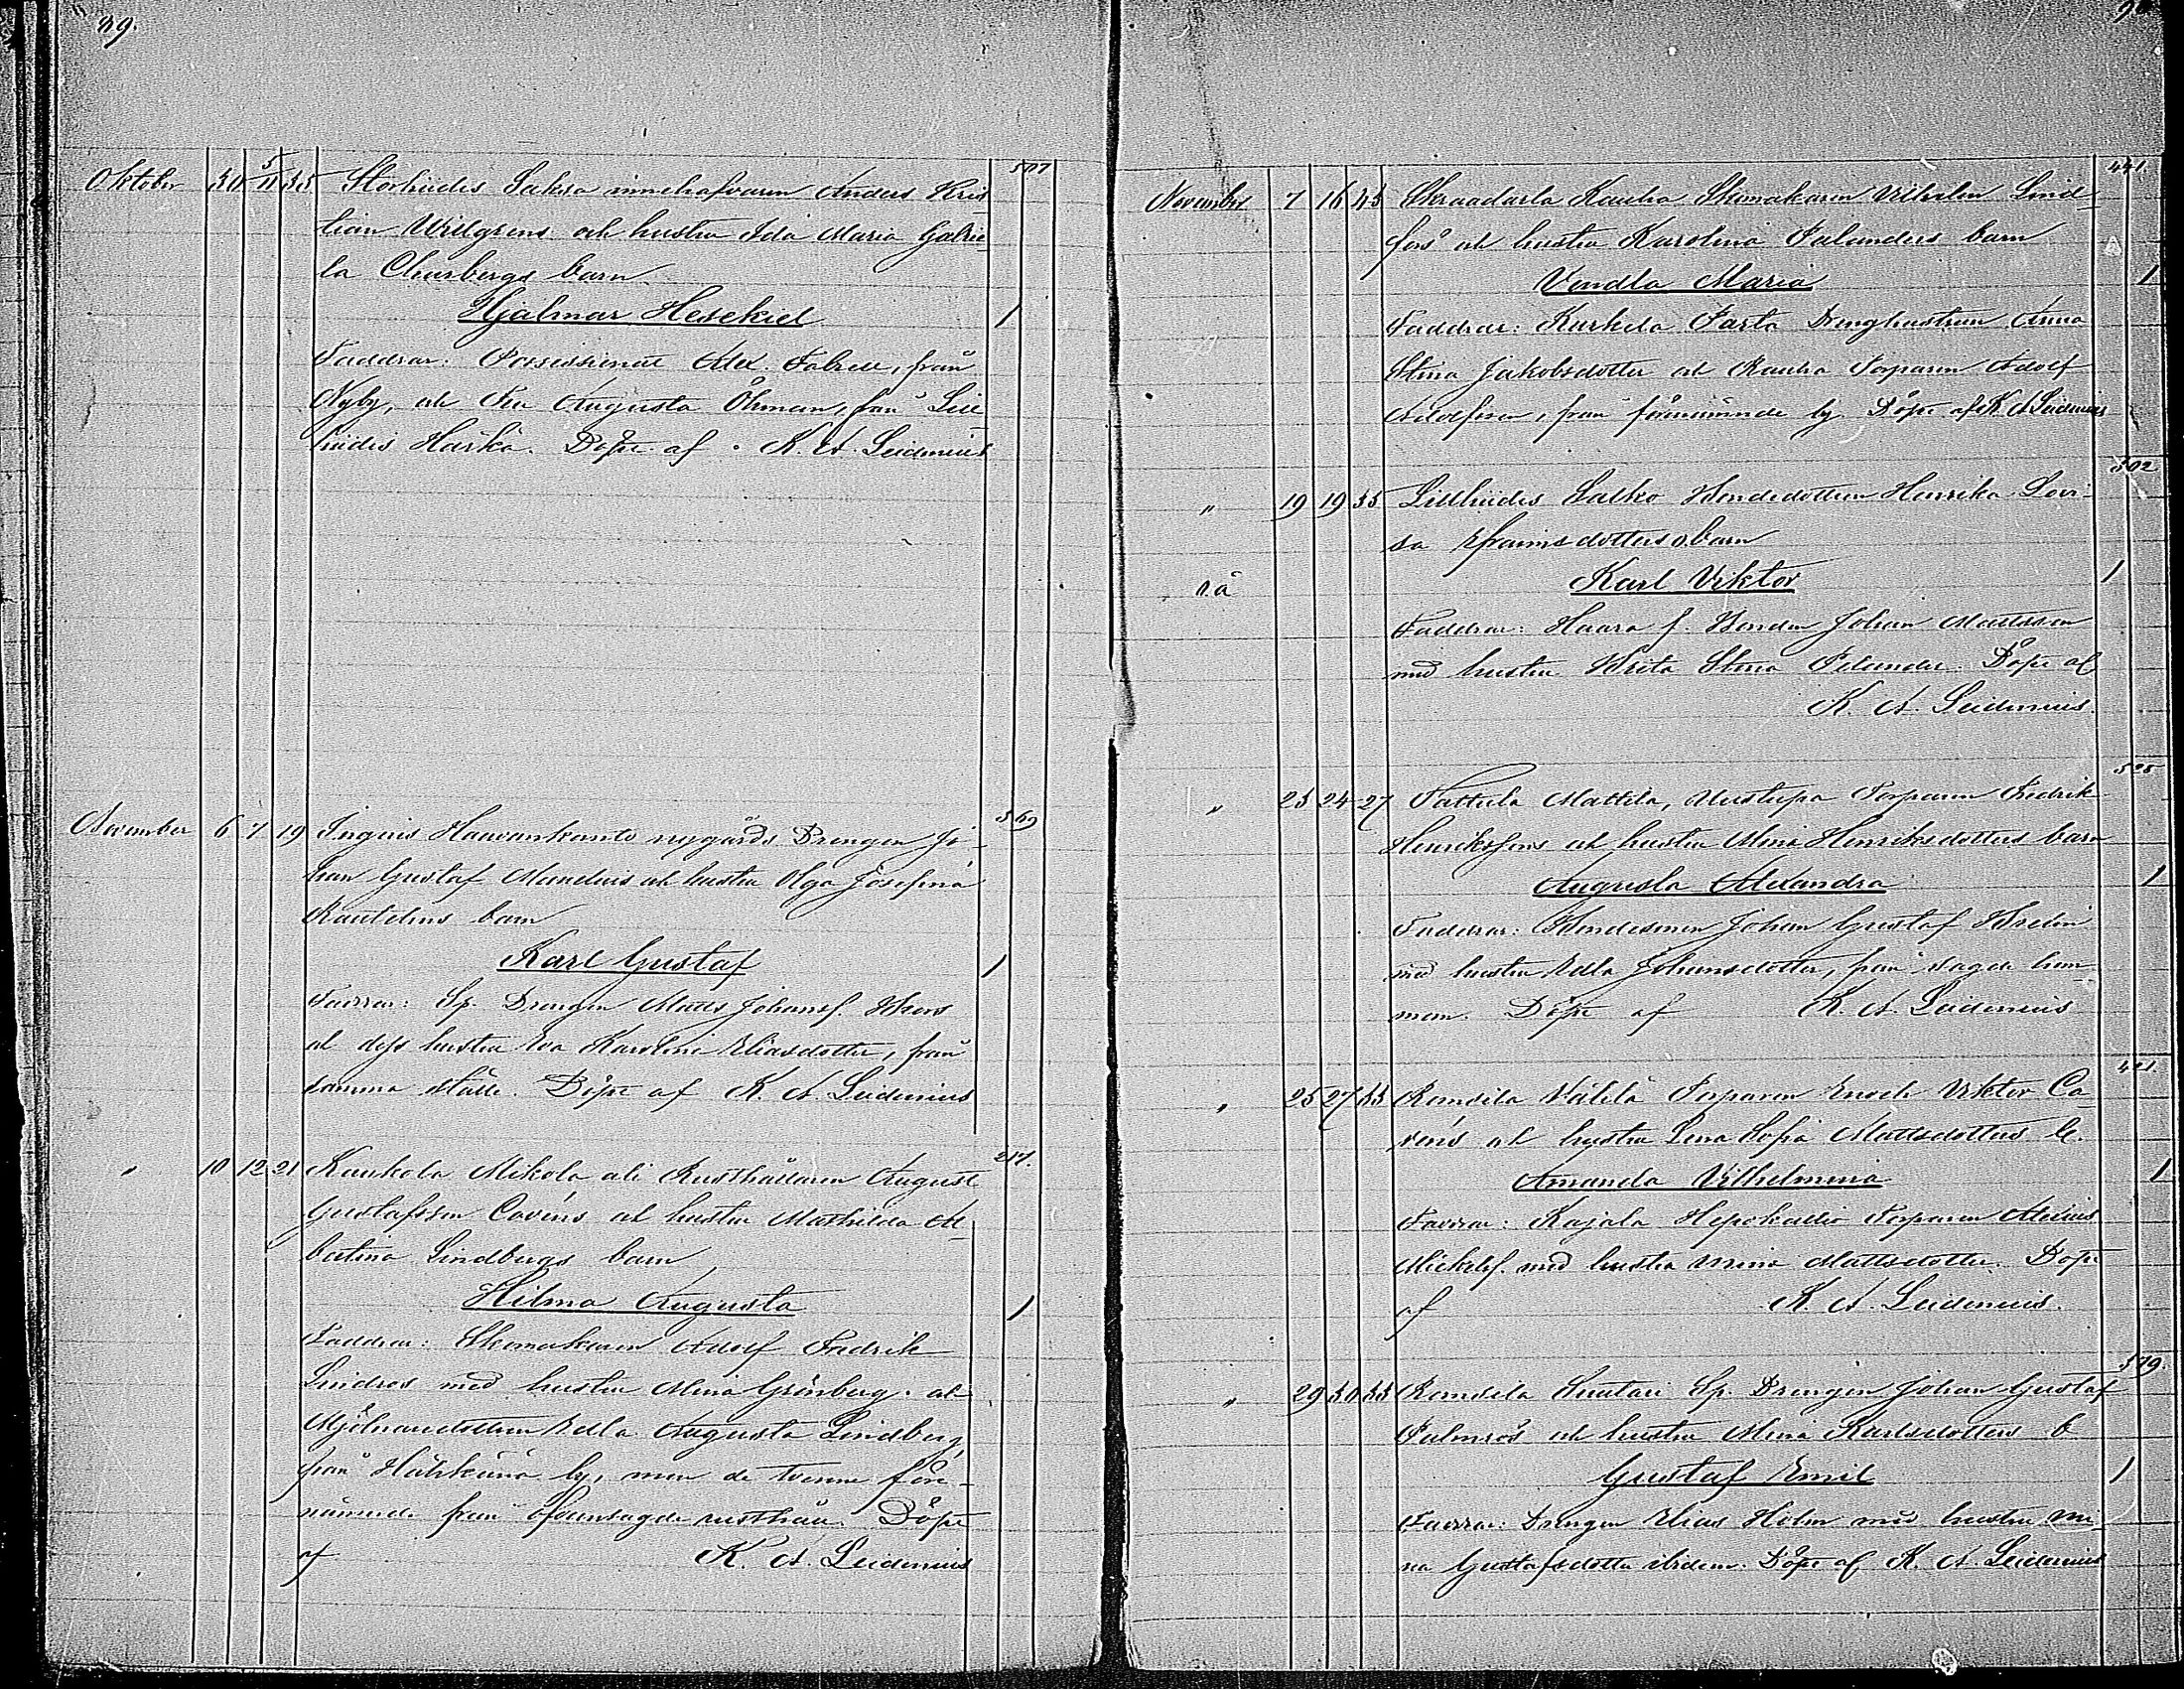 89.
507
Oktober 30 5/11 35 Storhiidis Saksa innehafvaren Anders Kris-
tian Wilgrens och hustru Ida Maria Gabrie-
la Churbergs barn
Hjalmar Hesekiel 1
Faddrar: Possessionat Alex. från
Nyby, och Fru Augusta Öhman, från Lill
hiidis Härkä. Döpt af K. A. Leidenius
369
November 6 7 19 Inguis Haavankanto nygårds Drengen Jo-
han Gustaf Mandelins och hustru Olga Josefina
Rautelins barn
Karl Gustaf 1
Faddrar: Sp. Drengen Matts Johansf.
och dess hustru Eva Karolina Eliasdotter, från
samma ställe. Döpt af K. A. Leidenius
217.
" 10 12 21 Kaukola Mikola ali Rusthållaren August
Gustafsson Lovéns och hustru Mathilda Al-
bertina Lindbergs barn
Hilma Augusta 1
Faddrar: Skomakaren Adolf Fredrik
Lindros med hustru Mina Grönberg och
Mjölnaredottren Edla Augusta Lindberg,
från by, men de tvenne före-
nämnde från ofvansagde rusthåll. Döpt
af K. A. Leidenius
90
441.
November 7 16 35 Skraadarla Rauha Skomakaren Vilhelm Lind-
fors och hustru Karolina Salanders barn
Vendla Maria 1
Faddrar: Kurkela Parta Dreng hustrun Anna
Stina Jakobsdotter och Rauha Torparen Adolf
Adolfsson, från förenämnde by. Döpt af K A Leidenius
502
" 19 19 35 Lillhiidis Salko Bondedottren Henrika Lovi-
sa Efraimsdotters o. barn
o.ä Karl Viktor 1
Faddrar: Haara f. Bonden Johan Mattsson
med hustru Greta Stina Selander. Döpt af
K. A. Leidenius.
525
" 23 24 27 Pattula Mattila, Torparen Fredrik
Henrikssons och hustru Mina Henriksdotters barn
Augusta Alexandra 1
Faddrar: Bondesonen Johan Gustaf
med hustru Edla Johansdotter, från sagde hem-
man. Döpt af K. A. Leidenius
401.
" 25 27 33 Ramsila Välilä Torparen Enoch Viktor Ca-
réns och hustru Lena Sofia Mattsdotters b.
Amanda Vilhelmina 1
Faddrar: Kajala Hepokallio Torparen Alexius
Mickelsf. med hustru Mina Mattsdotter. Döpt
af K. A. Leidenius.
379.
" 29 30 33 Ramsila Suutari Sp. Drengen Johan Gustaf
Palmros och hustru Mina Karlsdotters b
Gustaf Emil 1
Faddrar: Drengen Elias Holm med hustru Mi-
na Gustafsdotter ibidem. Döpt af K. A. Leidenius